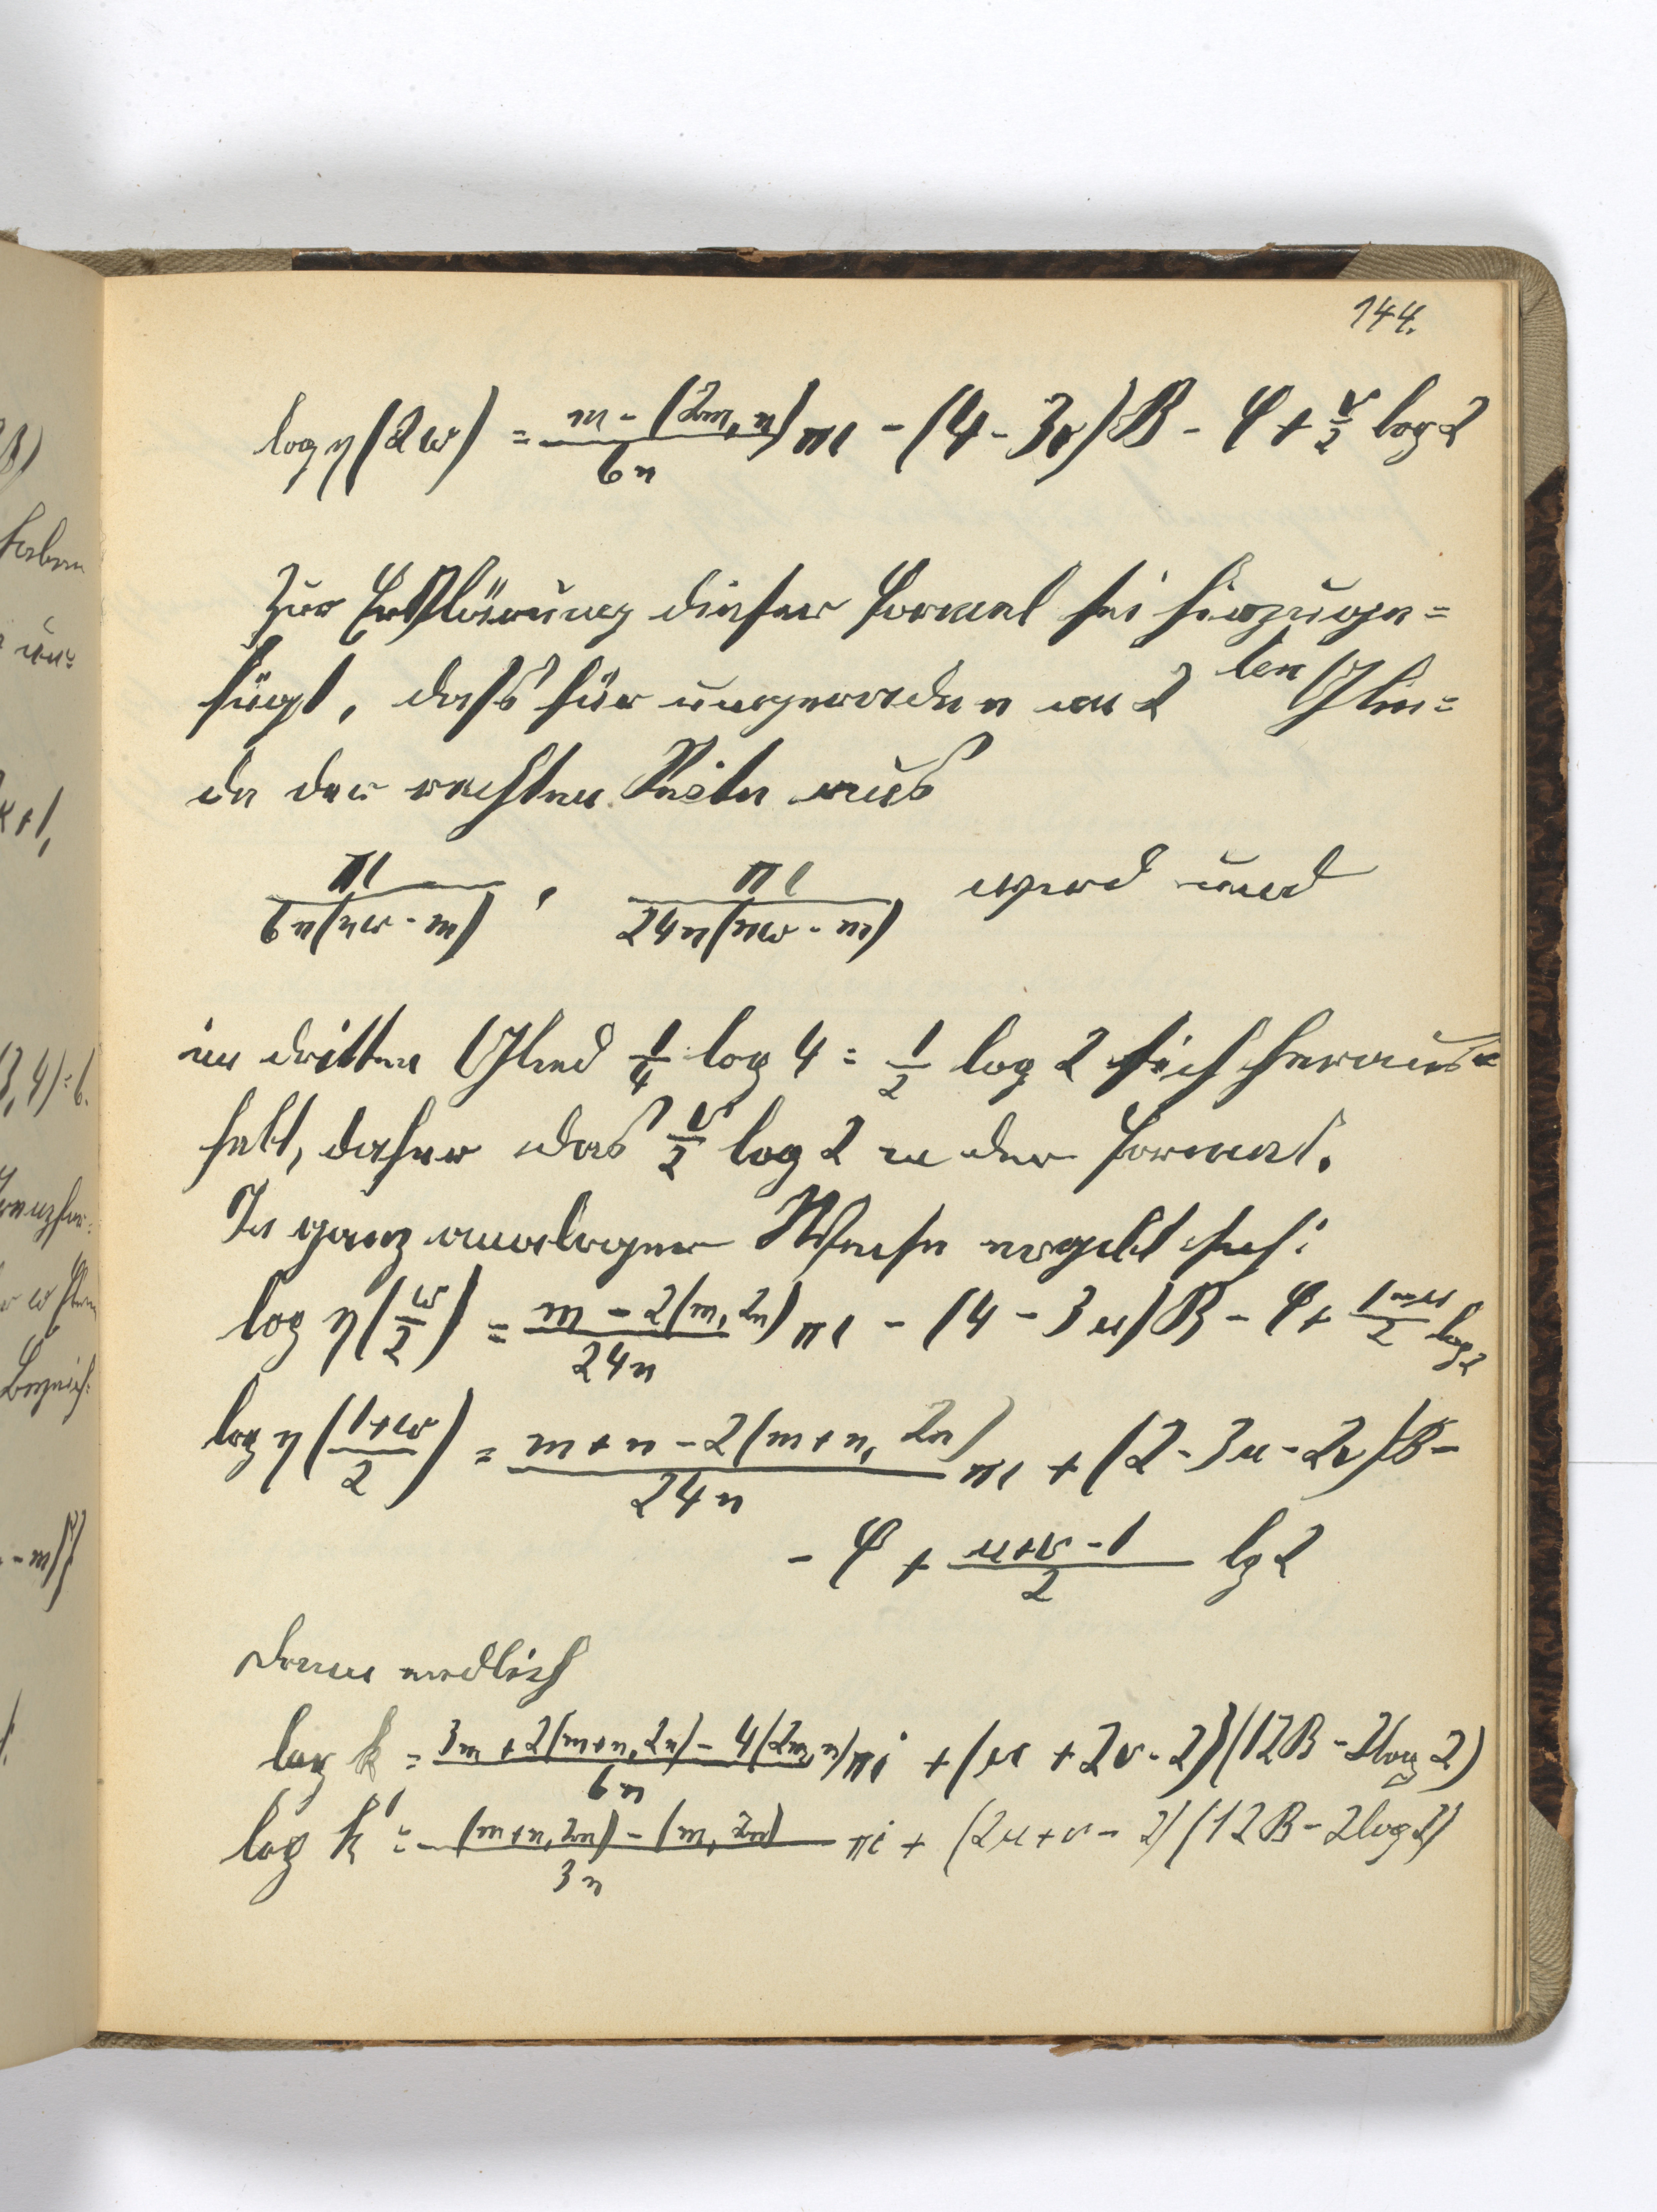 144.
log η(2ω) = (m - (2m, n))/(6n) πi - (4 - 3v)B - φ + v/2 log 2
Zur Erklärung dieser Formel sei hinzuge=
fügt, dass für ungerades n im 2ten Glie=
de der rechten Seite aus
πi/(6n(nω - m)), πi/(24n(nω - m)) wird und
im dritten Glied 1/4 log 4 = 1/2 log 2 sich heraus=
hebt, daher das v/2 log 2 in der Formel.
In ganz analoger Weise ergibt sich:
log η(ω/2) = (m - 2(m, 2n))/(24n) πi - (4 - 3u)B - φ + (1-u)/2 log 2
log η((1+ω)/2) = (m + n - 2(m + n, 2n))/(24n) πi + (2 - 3u - 2v)B -
- φ + (u+v-1)/2 lg 2
dann endlich
log k = (3m + 2(m+n, 2n) - 4(2m, n))/(6n) πi + (u + 2v - 2)(12B - 2log 2)
log k' = ((m+n, 2n) - (m, 2n))/(3n) πi + (2u + v - 2)(12B - 2log 2)